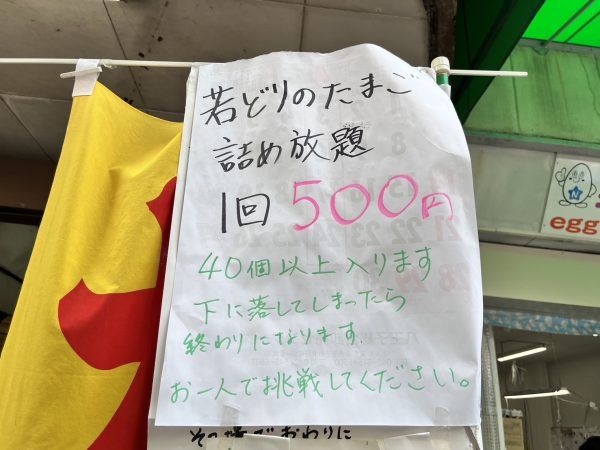 若どりのたまご
詰め放題
1回 500円
40個以上入ります
下に落してしまったら
終わりになります.
お一人で挑戦してください。
その場でおわりに
egg